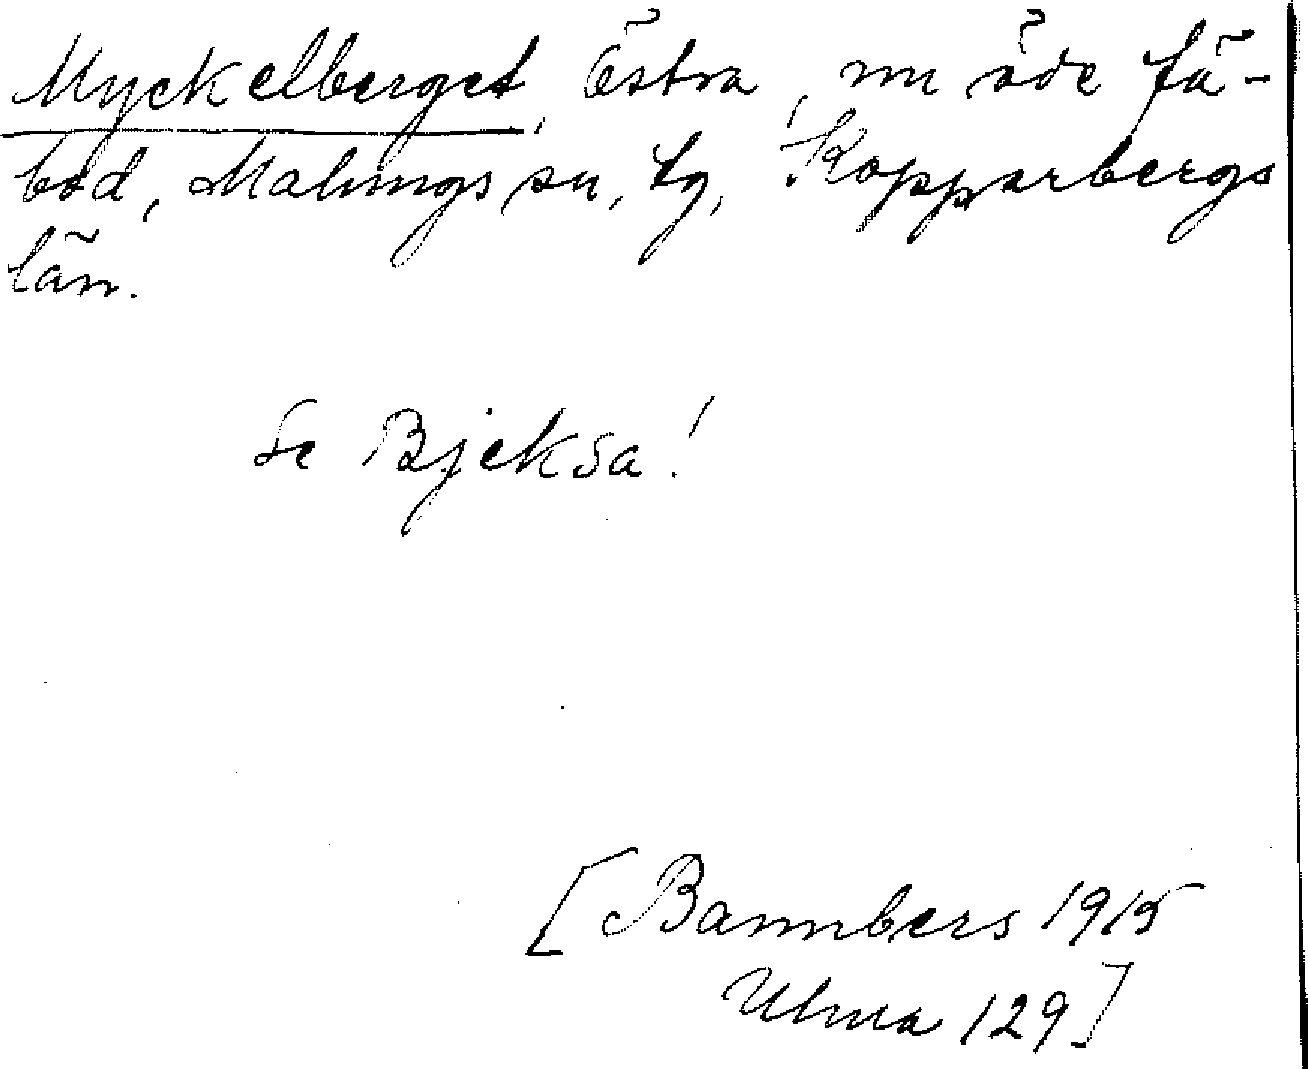 Myckelberget, Östra, nu öde fä-
bod, Malungs sn, tg, Kopparbergs
län.
Se Bjeksa!
[Bannbers 1915
Ulma 129]